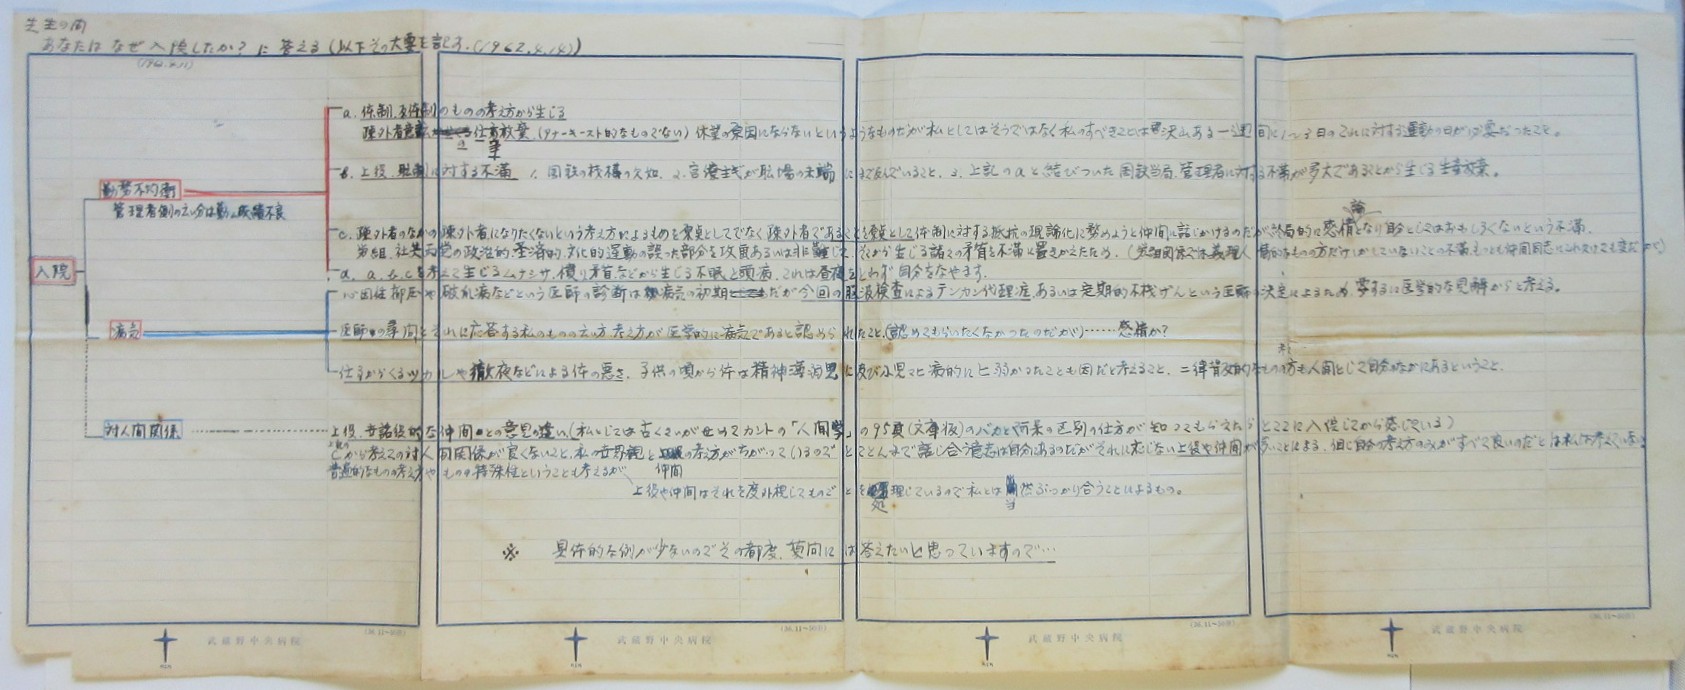 先生の問
あなたは なぜ 入院したか? に 答える (以下その大要を記す.(1962.4.14))
(1962.4.11)
a. 体制、反体制のものの考え方から生じる
疎外者意識 仕事放棄 (アナーキースト的なものでない) 休業の原因にならないというようなものだが私としてはそうではなく私のすべきことは沢山ある 一週間に1〜3日のこれに対する運動の日が必要だったこと。
勤労不均衡
b. 上役、職制に対する不満 1. 国鉄の機構の欠如、2. 官僚主義が職場の末端にまで及んでいること、3. 上記のaと結びついた国鉄当局、管理者に対する不満が多大であることから生じる生産放棄。
管理者側の云い分は勤務成績不良
c. 疎外者のなかの疎外者になりたくないという考え方がよるものを意員としてでなく疎外者であることを 体制に対する抵抗の理論化に努めようと仲間に話しかけるのだが 結局的に感情論となり自分としてはおもしろくないという不満。
労組、社共両党の政治的、経済的、文化的運動の誤った部分を攻撃あるいは非難して、そこから生じる諸々の矛盾を不満に置きかえたため。
入院
d. a、b、cを考えて生じるムナシサ、憤り矛盾などから生じる不眠と頭痛、これは昼夜をとわず自分をなやます。
心因性抑圧や破乱病などという医師の診断は病気の初期だが今回の脳波検査によるテンカン代理症、あるいは定期的不機げんという医師の決定によるため、要するに医学的な見解からと考える。
病気
医師の尋問とそれに応答する私のものの云い方、考え方が医学的に病気であると認められたこと、(認めてもらいたくなかったのだが)……感情か?
仕事からくるツカレや徹夜などによる体の悪さ、子供の頃から体は精神薄弱児に及び小児マヒ病的にヒ弱かったことも因だと考えること、二律背反的なものの考え方も人間として自分のなかにあるということ、
対人間関係
上役、世話役的な仲間との意見の違い(私としては古くさいがせめてカントの「人間学」の95頁(文庫版)のバカと阿呆の区別の仕方が知ってもらえたらとここに入院してから感じている)
上記のことから考えての対人間関係が良くないこと、私の世界観と仲間の考え方がちがっているのでとことんまで話し合う意志は自分はあるのだがそれに応じない上役や仲間が多いことによる、但し自分の考え方のみがすべて良いのだとは私は考えていない
普遍的なものの考え方やものの特殊性ということも考えるが
上役や仲間はそれを度外視してものごとを処理しているので私とは当然ぶつかり合うことによるもの。
※ 具体的な例が少ないのでその都度、質問には答えたいと思っていますので…
(36.11〜50冊)
武蔵野中央病院
(36.11〜50冊)
武蔵野中央病院
(36.11〜50冊)
武蔵野中央病院
(36.11〜50冊)
武蔵野中央病院